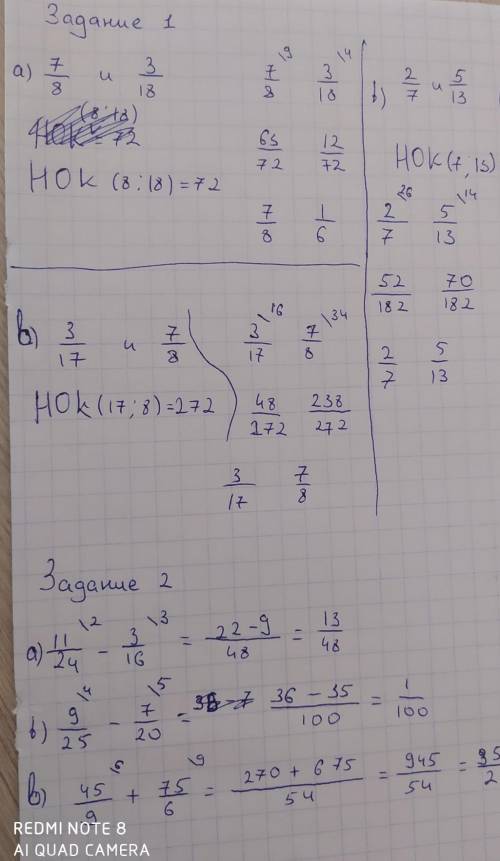 Задание 1
а) 7/8 и 3/18
НОК (8;18) = 72
НОК (8;18) = 72
7/8 \9 3/18 \4
63/72 12/72
7/8 1/6
б) 2/7 и 5/13
НОК (7; 13)
2/7 \26 5/13 \14
52/182 70/182
2/7 5/13
в) 3/17 и 7/8
НОК (17; 8) = 272
3/17 \16 7/8 \34
48/272 238/272
3/17 7/8
Задание 2
а) 11/24 \2 - 3/16 \3 = 22 - 9/48 = 13/48
б) 9/25 \4 - 7/20 \5 = 36 - 35/100 = 1/100
в) 45/9 \6 + 75/6 \9 = 270 + 675/54 = 945/54 = 35/2
REDMI NOTE 8
AI QUAD CAMERA